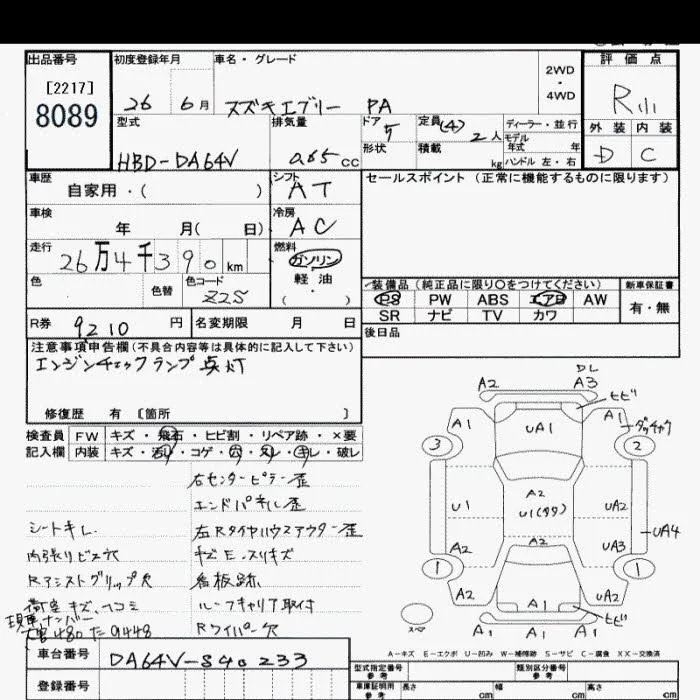 出品番号 初度登録年月 車名・グレード 2WD・4WD 評価点
[2217]
8089 26 6月 スズキエブリー PA R
型式 排気量 ドア 5 定員 (4) 2人 ディーラー・並行 外装 内装
HBD-DA64V 0.65 CC 形状 積載 kg モデル年式 年 ハンドル 左・右 D C
車歴 自家用・( ) シフト AT セールスポイント (正常に機能するものに限ります)
車検 年 月( 日) 冷房 AC
走行 26万4千390km 燃料 ガソリン 軽油 ( ・ )
色 色替 色コード Z2S
装備品 (純正品に限り○をつけてください) 新車保証書
PS PW ABS エアB AW 有・無
SR ナビ TV カワ
R券 9210円 名変期限 月 日 後日品
注意事項申告欄 (不具合内容等は具体的に記入して下さい)
エンジンチェックランプ点灯
修復歴 有 [箇所 ]
検査員 FW キズ・飛石・ヒビ割・リペア跡・×要
記入欄 内装 キズ・汚れ・コゲ・穴・欠レ・キレ・破レ
右センターピラー歪
エンドパネル歪
シートキレ 左Rタイヤハウスアウター歪
内張リビス穴 キズE.スリキズ
Rアシストグリップ欠 看板跡
荷室キズ、ヘコミ ルーフキャリア取付
現車ナンバー
480 た 9448 Rワイパー欠
車台番号 DA64V-840233
登録番号
型式指定番号 参考 類別区分番号 参考
車庫証明用 参考 長さ cm 幅 cm 高さ cm
DL
A2 A3 ヒビ
A1 UA1 A1
3 2
A2
U1 U1(タタ) UA2
UA4
A2 A2 UA3
1 1
A2 UA2
A1 ヒビ
スペア A1 A1 A1
A-キズ E-エクボ U-凹み W-補修跡 S-サビ C-腐食 XX-交換済